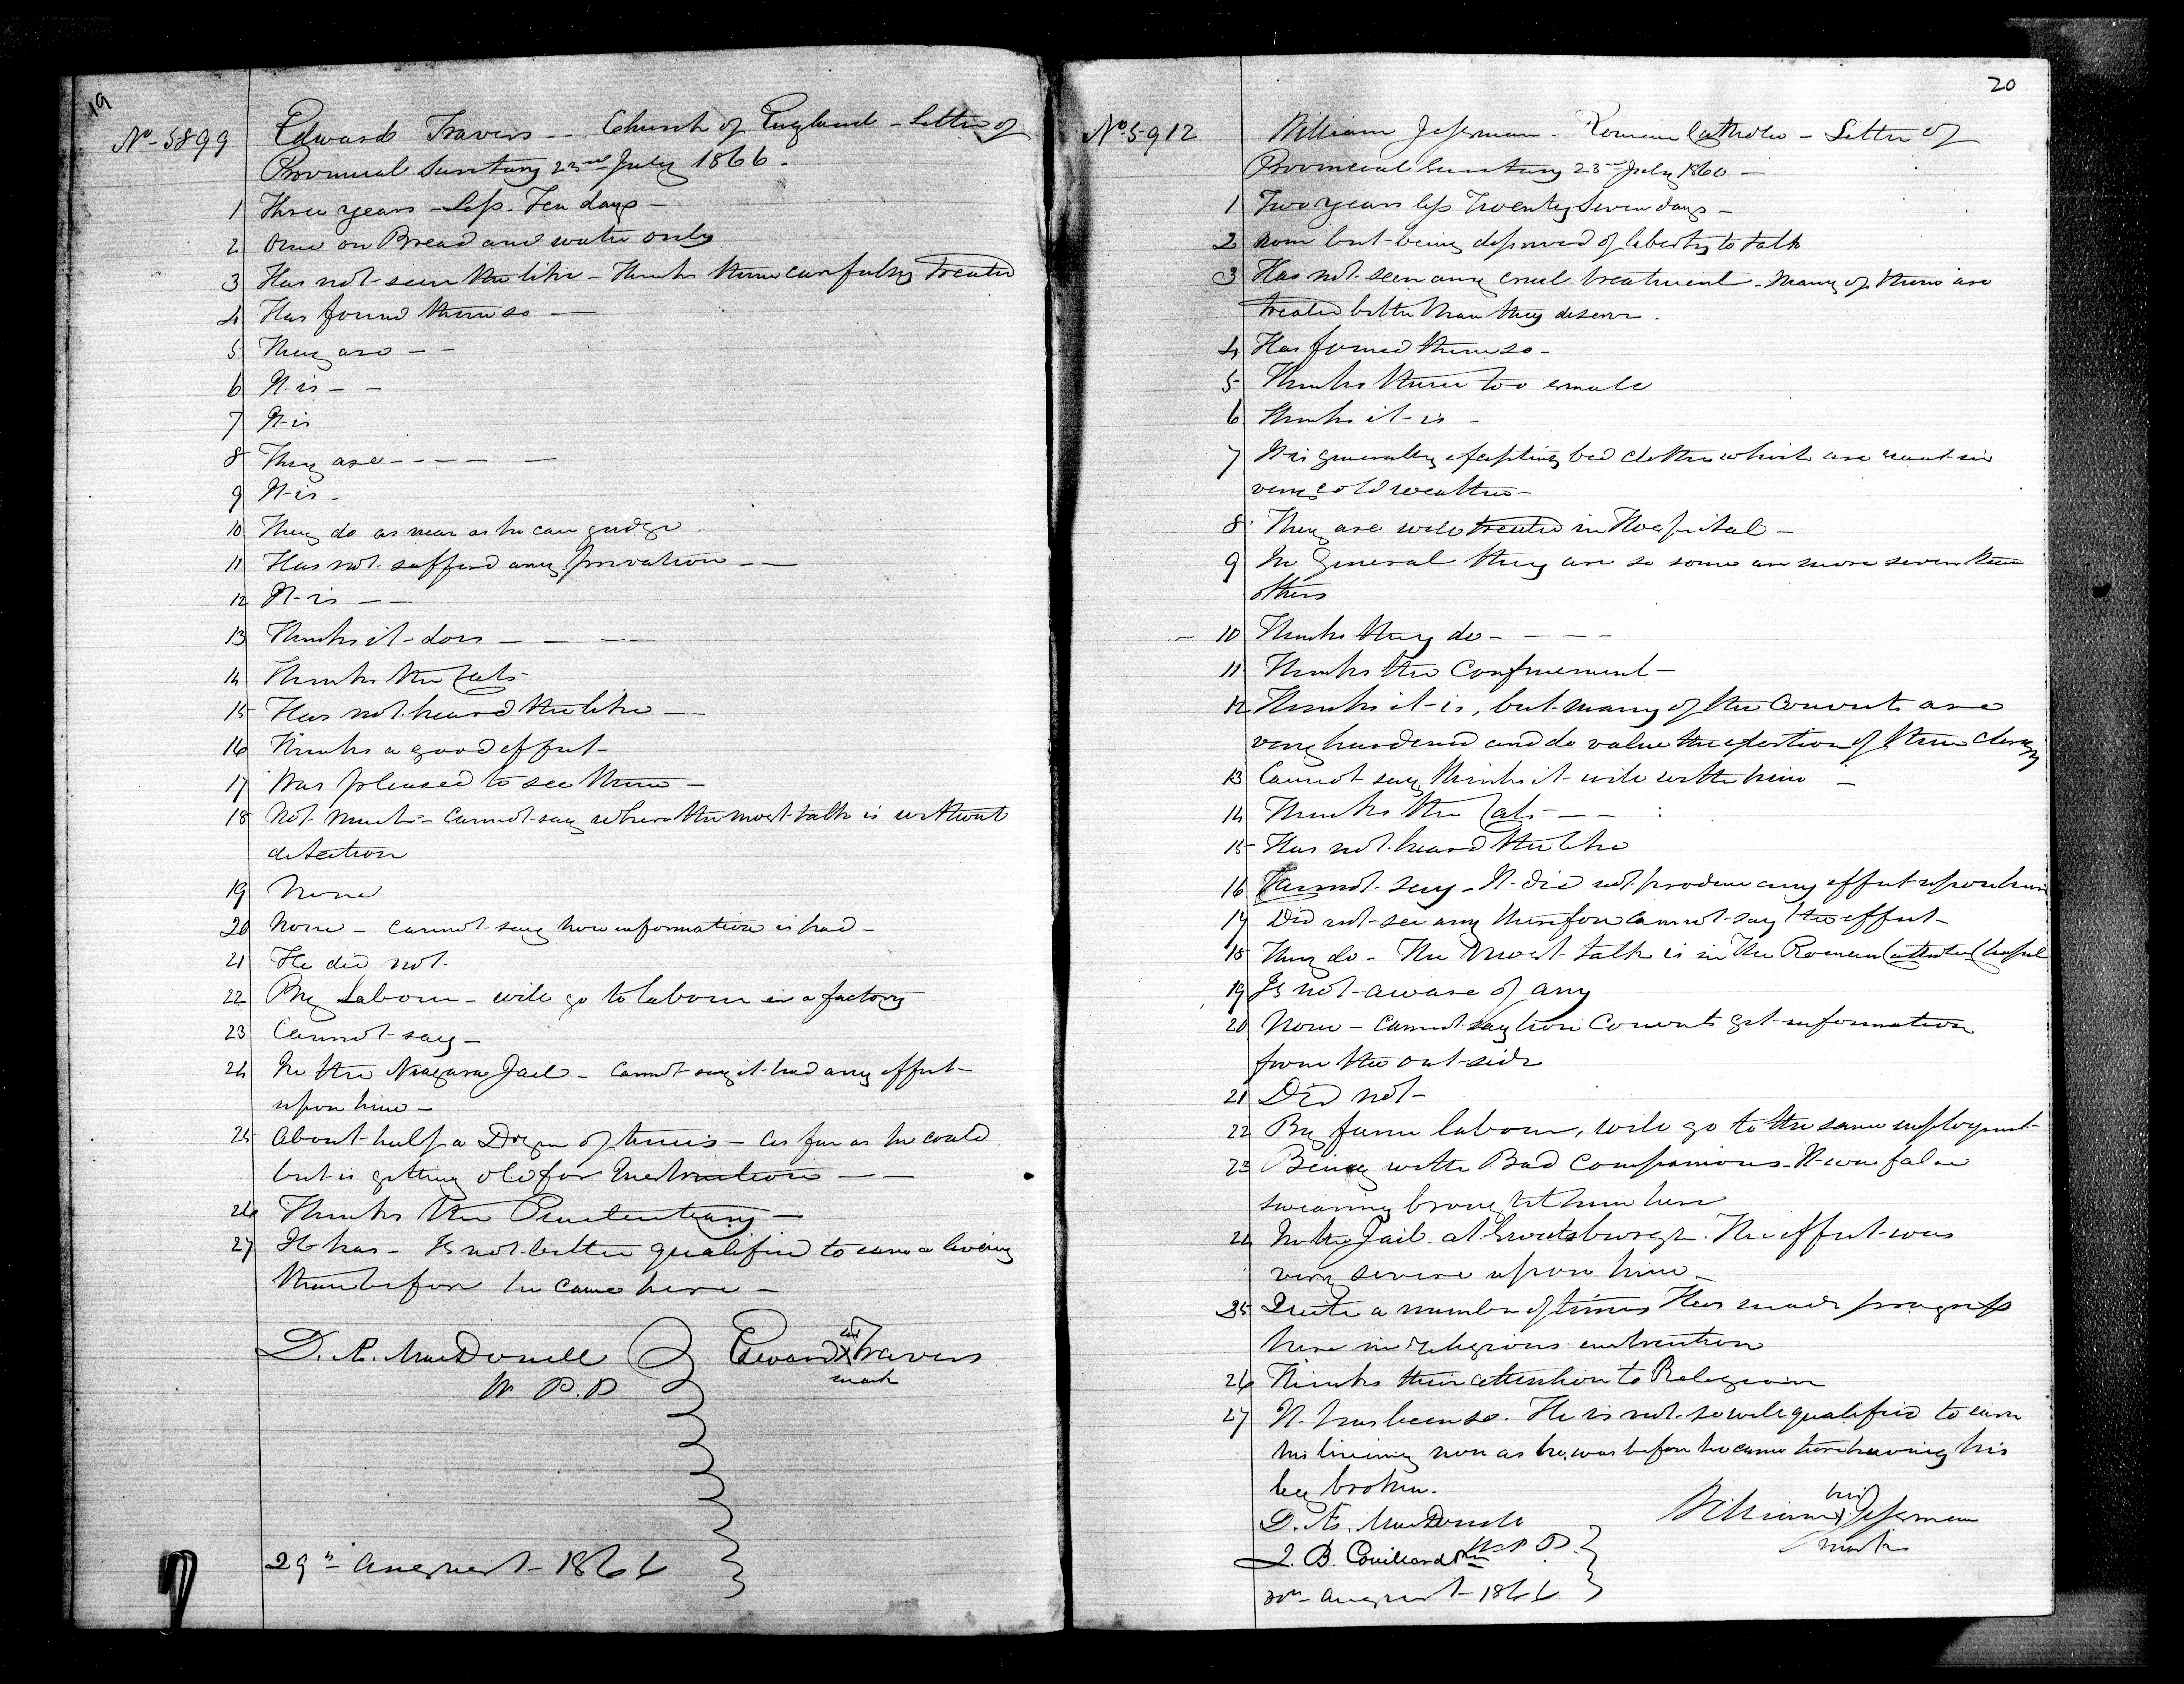 19
No - 5899
Edward Travers -- Church of England - Letter of
Provincial Secretary 23rd July 1866.
1 Three years - Less. Ten days -
2 One on Bread and water only
3 Has not seen the like - Thinks them carefully treated
4 Has found them so —
5 They are - -
6 It is - -
7 It is
8 They are - - - - —
9 It is -
10 They do as near as he can judge
11 Has not suffered any privation - -
12 It is — -
13 Thinks it does — - — -
14 Thinks the Cats
15 Has not heard the like —
16 Thinks a good effect -
17 Was pleased to see them -
18 Not much - Cannot say where the most talk is without
detection
19 None
20 None - Cannot say how information is had -
21 He did not.
22 By Labour - will go to labour in a factory
23 Cannot say -
24 In the Niagara Jail - Cannot say it had any effect
upon him -
25 About half a Dozen of times - As far as he could
but is getting old for Instruction — -
26 Thinks the Penitentiary -
27 It has - Is not better qualified to earn a living
than before he came here -
D. Æ. MacDonell
W P.P
Edward his X Travers
mark
29th August - 1866
20
No 5912
William Jessman - Roman Catholic - Letter of
Provincial Secretary 23rd July 1860 —
1 Two years less Twenty Seven days -
2 None but being deprived of liberty to talk
3 Has not seen any cruel treatment - Many of them are
treated better than they deserve.
4 Has found them so -
5 Thinks them too small
6 Thinks it is -
7 It is generally excepting bed clothes which are scant in
very cold weather -
8 They are well treated in Hospital -
9 In General they are so some are more severe than
others
10 Thinks they do - - - -
11 Thinks the Confinement -
12 Thinks it is, but many of the Convicts are
very hardened and do value the exertion of their clergy
13 Cannot say thinks it will with him -
14 Thinks the Cats - -
15 Has not heard the like
16 Cannot say - It did not produce any effect upon him
17 Did not see any therefore cannot say the effect -
18 They do - The most talk is in the Roman Catholic Chapel
19 Is not aware of any
20 None - Cannot say how Convicts get information
from the out-side
21 Did not -
22 By farm labour, will go to the same employment -
23 Being with Bad Companions - It was false
swearing brought him here
24 In the Jail at Sweetsburgh. The effect was
very severe upon him -
25 Quite a number of times Has made progress
here in religious instruction
26 Thinks their attention to Religion
27 It has been so. He is not so well qualified to earn
his living now as he was before he came here having his
leg broken.
D. Æ. MacDonell
W.P P.
J. B. Couillard
William his X Jessman
mark
30th August - 1866